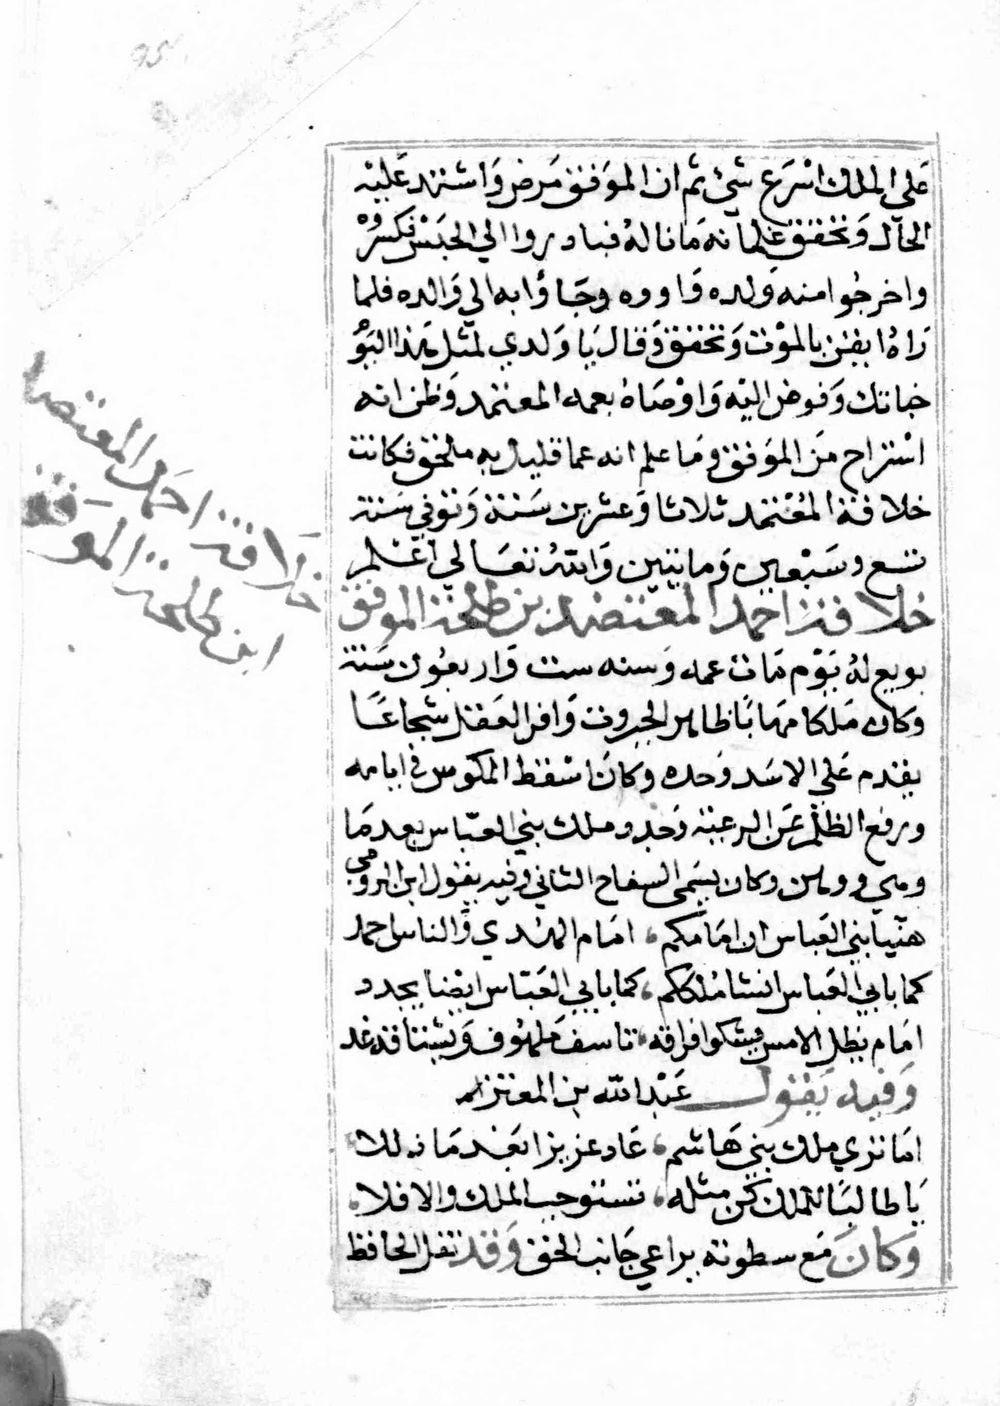 علي الملك اسرع شئ ثم ان الموفق مرض واشتد عليه
الحال وتحقق غلمانه ما ناله فبادروا الي الحبس فكسروه
واخرجوا منه ولده واووه وجاؤا به الي والده فلما
راه ايقن بالموت وتحقق وقال يا ولدي لمثل هذا اليوم
خباتك وفوض اليه واوصاه بعمه المعتمد وظن انه
استراح من الموفق وما علم انه عما قليل به ملحق فكانت
خلافة المعتمد ثلاثا وعشرين سنة وتوفي سنة
تسع وسبعين ومايتين والله تعالي اعلم
خلافة احمد المعتضد بن طلحة الموفق
بويع له يوم مات عمه وسنه ست واربعون سنة
وكان ملكا مهابا ظاهر الجبروت وافر العقل شجاعا
يقدم علي الاسد وحده وكان اسقط المكوس في ايامه
ورفع الظلم عن الرعية وجدد ملك بني العباس بعد ما
وهي ووهن وكان يسمي السفاح الثاني وفيه يقول ابن الرومي
هنيا بني العباس ان امامكم، امام الهدي والناس احمد
كما بابي العباس انشا ملككم، كما بابي العباس ايضا يجدد
امام يظل الامس يشكو افراقه، تاسف ملهوف ويشتاقه غد
وفيه يقول عبد الله بن المعتز
اما تري ملك بني هاشم، عاد عزيزا بعد ما ذللا
يا طالبا للملك كن مثله، تستوجب الملك والا فلا
وكان مع سطوته يراعي جانب الحق وقد نقل الحافظ
خلافة احمد المعتضد
ابن طلحة الموفق